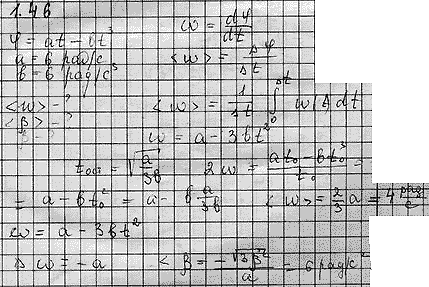 1.46
φ = at - bt³
a = 6 рад/с
b = 6 рад/с³
<ω> - ?
<β> - ?
β - ?
ω = dφ/dt
<ω> = Δφ/Δt
<ω> = 1/Δt ∫₀^Δt ω(t) dt
ω = a - 3bt²
t = √(a/3b) <ω> = (at₀ - bt₀³)/t₀ =
= a - bt₀² = a - b a/3b <ω> = 2/3 a = 4 рад/с
ω = a - 3bt²
Δω = -a